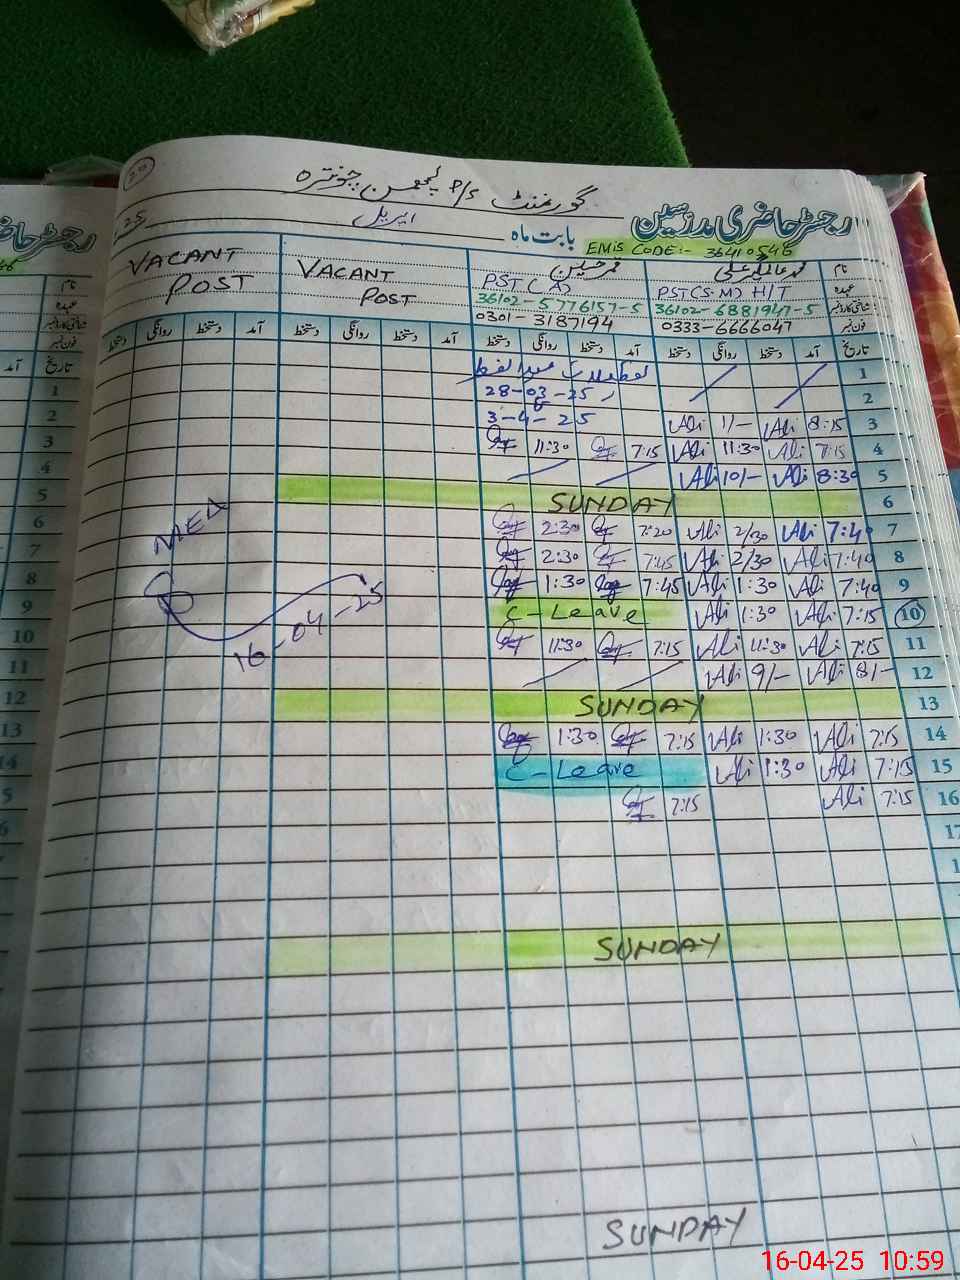 گورنمنٹ P/S پلجھمن چونترہ
رجسٹر حاضری مدرسین
بابت ماہ اپریل 25
EMIS CODE:- 36410546
نام
VACANT POST
VACANT POST
عہدہ PST(S.M) H/T PST(A)
شناختی کارڈ نمبر 36102-6881947-5 36102-5776157-5
فون نمبر 0333-6666047 0301-3187194
تاریخ آمد دستخط روانگی دستخط آمد دستخط روانگی دستخط آمد دستخط روانگی دستخط آمد دستخط روانگی دستخط
1 تعطیلات عیدالفطر
2 28-03-25
3 8:15 Ali 11/- Ali 3-4-25
4 7:15 Ali 11:30 Ali 7:15 11:30
5 8:30 Ali 10/- Ali
6 SUNDAY
7 7:40 Ali 2/30 Ali 7:20 2:30
8 7:40 Ali 2/30 Ali 7:45 2:30
9 7:40 Ali 1:30 Ali 7:45 1:30
10 7:15 Ali 1:30 Ali C-Leave
11 7:15 Ali 11:30 Ali 7:15 11:30
12 8/- Ali 9/- Ali
13 SUNDAY
14 7:15 Ali 1:30 Ali 7:15 1:30
15 7:15 Ali 1:30 Ali C-Leave
16 7:15 Ali 7:15
17
SUNDAY
SUNDAY
MEA
16-04-25
رجسٹر حا
آمد تاریخ
1
2
3
4
5
6
7
8
9
10
11
12
13
14
5
6
16-04-25 10:59